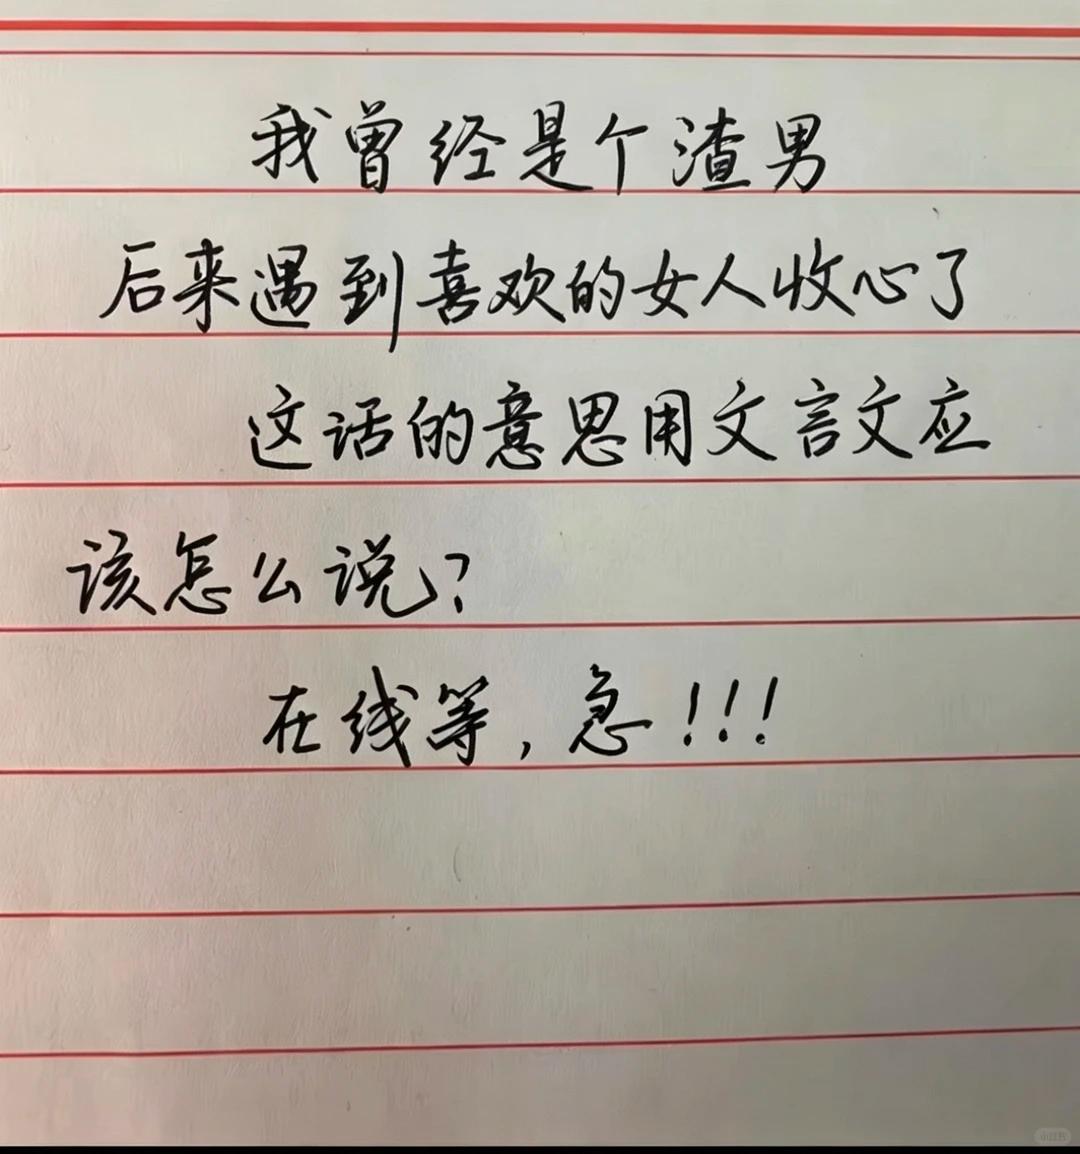 我曾经是个渣男
后来遇到喜欢的女人收心了
这话的意思用文言文应
该怎么说?
在线等,急!!!
小红书